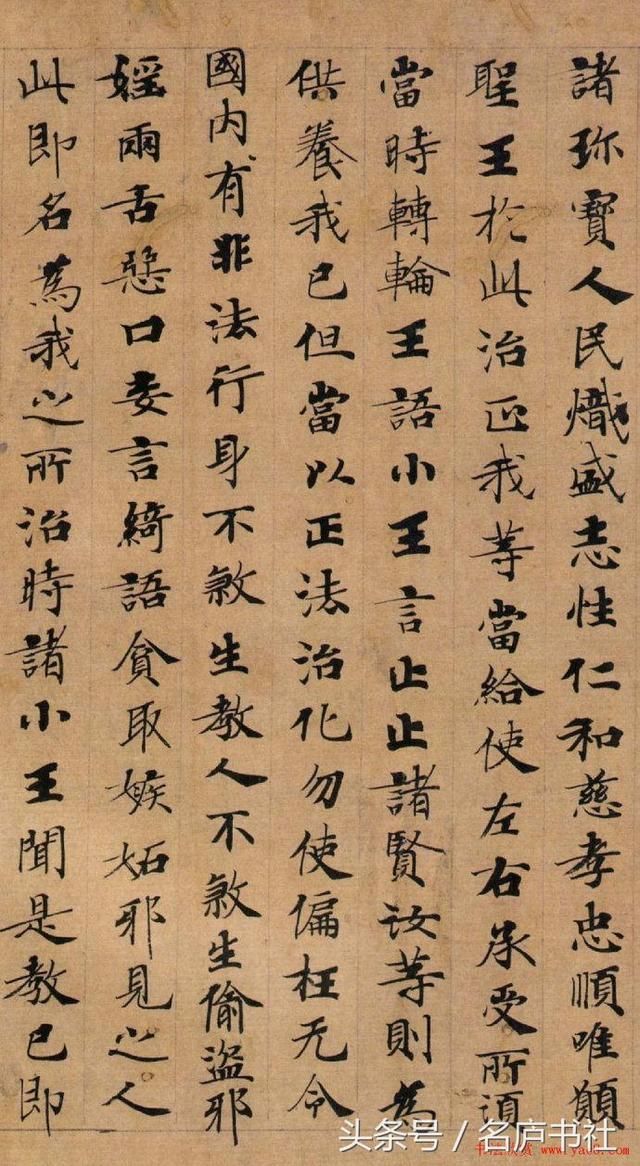 諸珎寶人民熾盛志性仁和慈孝忠順唯願
聖王於此治正我等當給使左右承受所須
當時轉輪王語小王言止止諸賢汝等則為
供養我已但當以正法治化勿使偏枉无令
國內有非法行身不煞生教人不煞生偷盜邪
婬兩舌惡口妄言綺語貪取嫉妬邪見之人
此即名為我之所治時諸小王聞是教已即
头条号 / 名庐书社